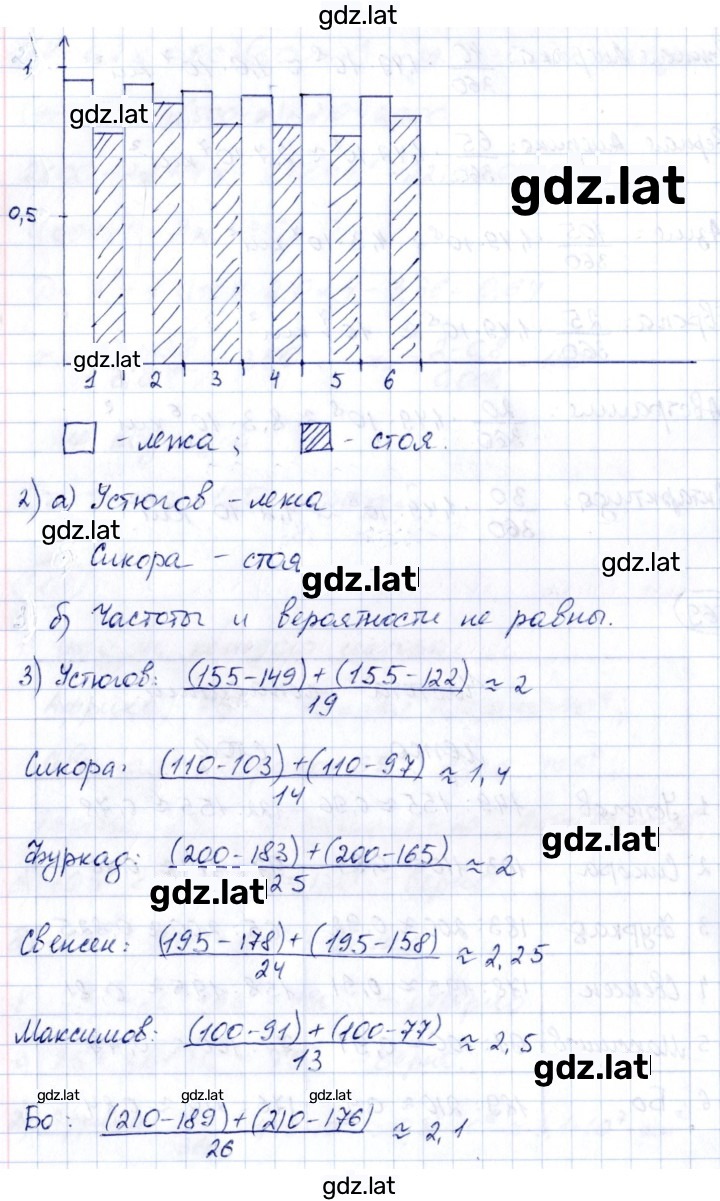 gdz.lat
1
gdz.lat
gdz.lat
0,5
gdz.lat
1 2 3 4 5 6
- лежа ; - стоя.
2) а) Устюгов - лежа
gdz.lat
Сикора - стоя
gdz.lat
gdz.lat
б) Частоты и вероятности не равны.
3) Устюгов: (155-149)+(155-122) ≈ 2
19
Сикора: (110-103)+(110-97) ≈ 1,4
14
gdz.lat
Фуркад: (200-183)+(200-165) ≈ 2
25
gdz.lat
Свенсен: (195-178)+(195-158) ≈ 2,25
24
Максимов: (100-91)+(100-77) ≈ 2,5
13
gdz.lat
gdz.lat gdz.lat gdz.lat
Бо: (210-189)+(210-176) ≈ 2,1
26
gdz.lat